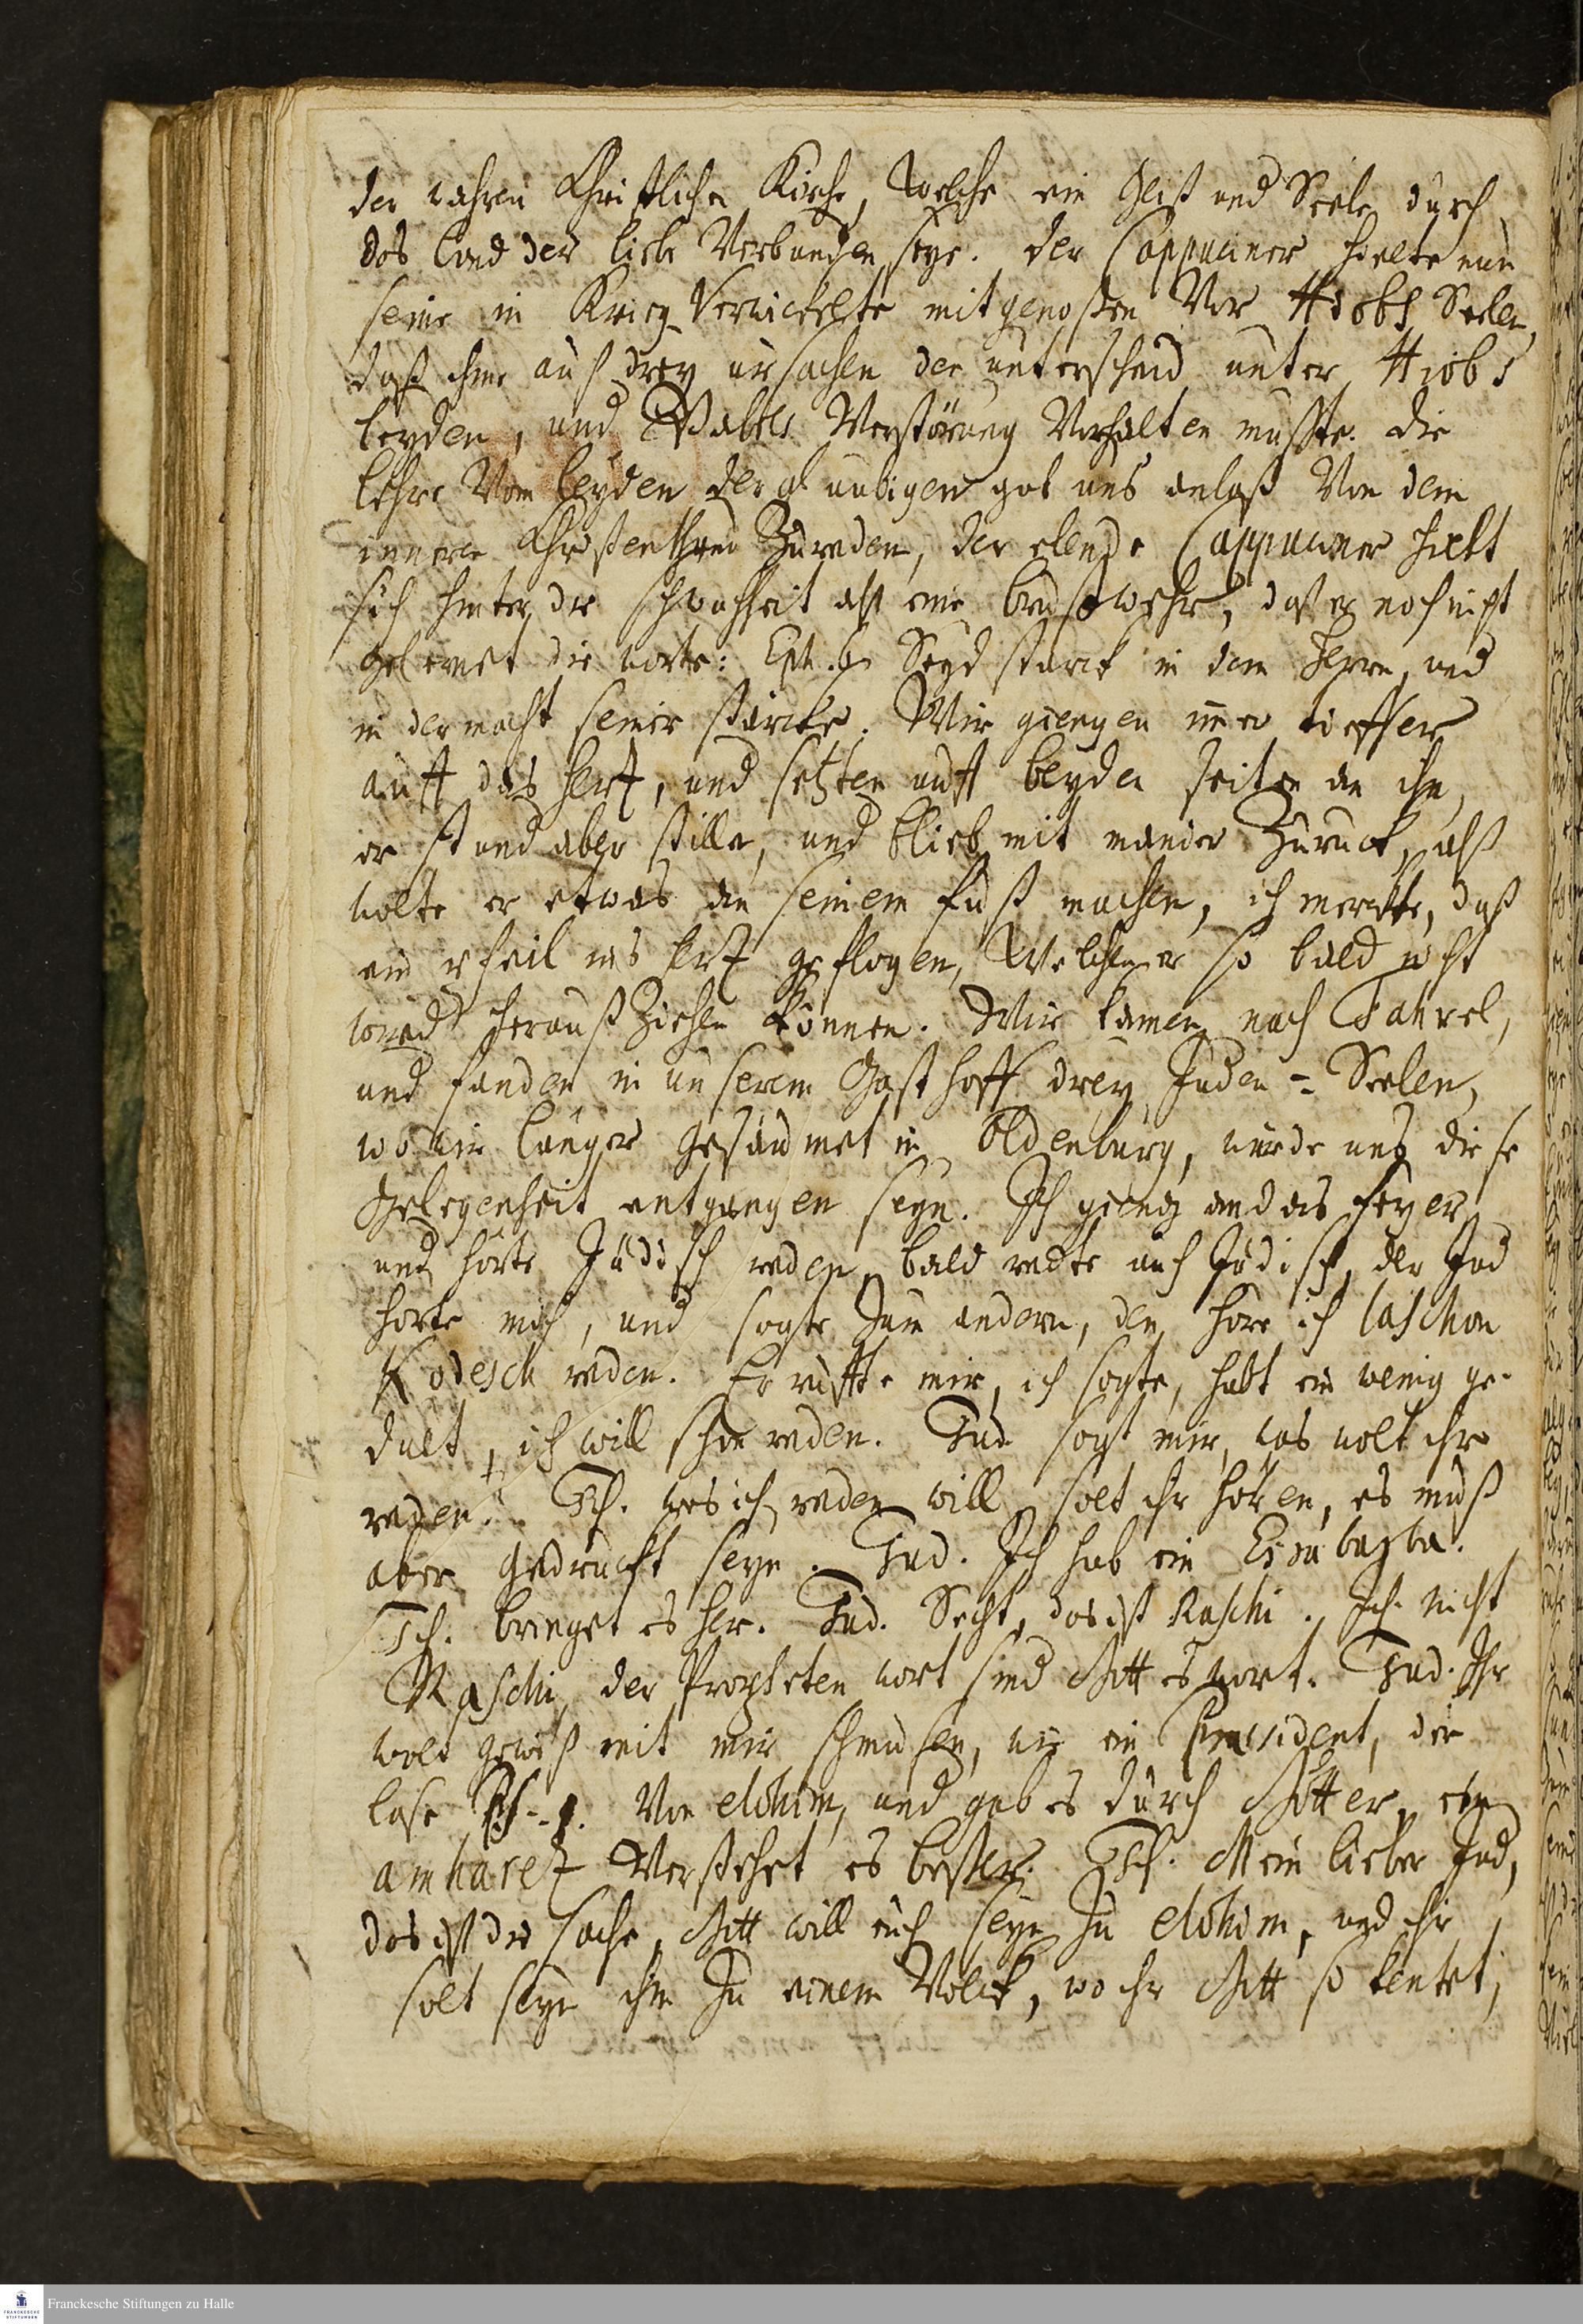 der wahren Christlichen Kirche, Welche ein Geist und Seele durch
das band der liebe Verbunden seye. Der Cappuciner hielte nun
seine in Krieg Verwickelte mitgenoßen Vor Hiobs Seelen,
daß ihme auß drey ursachen der unterscheid unter Hiobs
leyden, und Babels Verstörung Vorhalten muste. Die
lehre Vom leyden der glaubigen gab uns anlaß Von dem
innern Christenthum Zureden, der elende Cappuciner hielt
sich hinter die schwachheit alß eine brustwehr, daß er noch nicht
gelernet die worte: Eph. 6. Seyd starck in dem Herrn, und
in der macht seiner stärcke. Wir giengen immer tieffer
auff das hertz, und setzten auff beyden seiten an ihn,
er stund aber stille, und blieb mit manier Zuruck, alß
wolte er etwas an seinem fuß machen, ich merckte, daß
ein pfeil ins hertz geflogen, Welchen er so bald nicht
wird herauß Ziehen können. Wir kamen nach Fahrel,
und fanden in unserem Gasthoff drey Juden-Seelen,
wo wir länger gesäumet in Oldenburg, würde uns diese
Gelegenheit entgangen seyn. Ich gieng an das feyer
und hörte Jüdisch reden, bald redte auch Jüdisch, der Jud
hörte mich, und sagte Zum andern, den höre ich laschon
Kodesch reden. Er ruffte mir, ich sagte, habt ein wenig ge-
dult, ich will schon reden. Jud sagt mir, was wolt ihr
reden? Ich. was ich reden will, solt ihr hören, es muß
aber gedruckt seyn. Jud. Ich hab ein
Ich. bringet es her. Jud. Seht, das ist Raschi. Ich. nicht
Raschi, der Propheten wort sind Gottes wort. Jud. Ihr
wolt gewiß mit mir schmusen, wie ein Praesident, der
lase Ps. Von elohim, und gab es durch Götter, ein
amharetz Verstehet es besser. Ich. Mein lieber Jud,
das ist die sache, Gott will euch seyn Zu elohim, und ihr
solt seyn ihm Zu einem Volck, wo ihr Gott so kentet,
Franckesche Stiftungen zu Halle